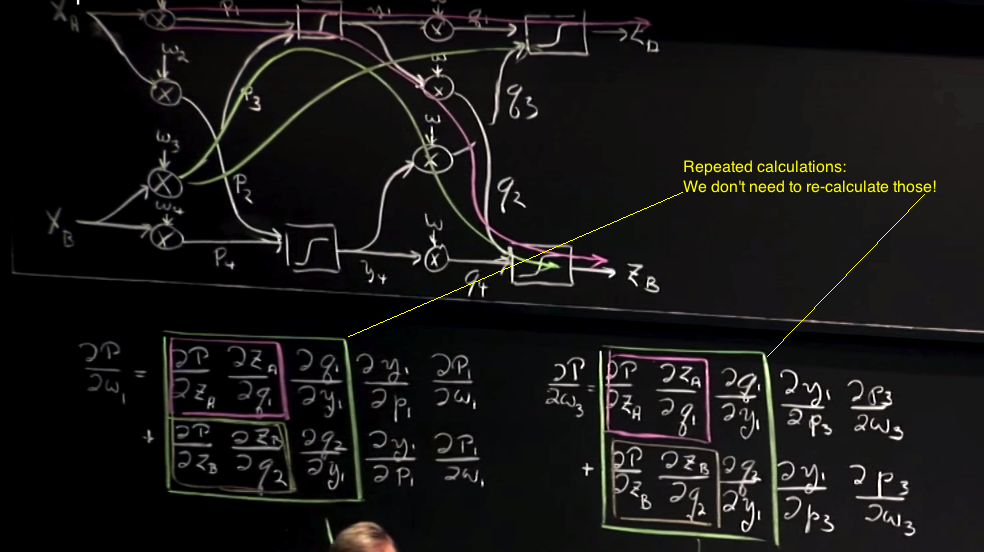 X_A P_1 y_1 w q_1 Z_A
w_2 w
P_3 q_3
w_3 w
P_2 q_2
w_4 w
X_B P_4 y_4 q_4 Z_B
Repeated calculations:
We don't need to re-calculate those!
∂P/∂w_1 = ∂P/∂z_A ∂z_A/∂q_1 ∂q_1/∂y_1 ∂y_1/∂p_1 ∂P_1/∂w_1
+ ∂P/∂z_B ∂z_B/∂q_2 ∂q_2/∂y_1 ∂y_1/∂P_1 ∂P_1/∂w_1
∂P/∂w_3 = ∂P/∂z_A ∂z_A/∂q_1 ∂q_1/∂y_1 ∂y_1/∂p_3 ∂p_3/∂w_3
+ ∂P/∂z_B ∂z_B/∂q_2 ∂q_2/∂y_1 ∂y_1/∂p_3 ∂p_3/∂w_3